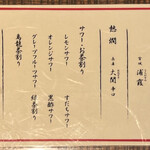 宮城 浦霞
熱燗
兵庫 大関 辛口
サワー・お茶割り
レモンサワー
すだちサワー
オレンジサワー
黒酢サワー
グレープフルーツサワー
緑茶割り
烏龍茶割り